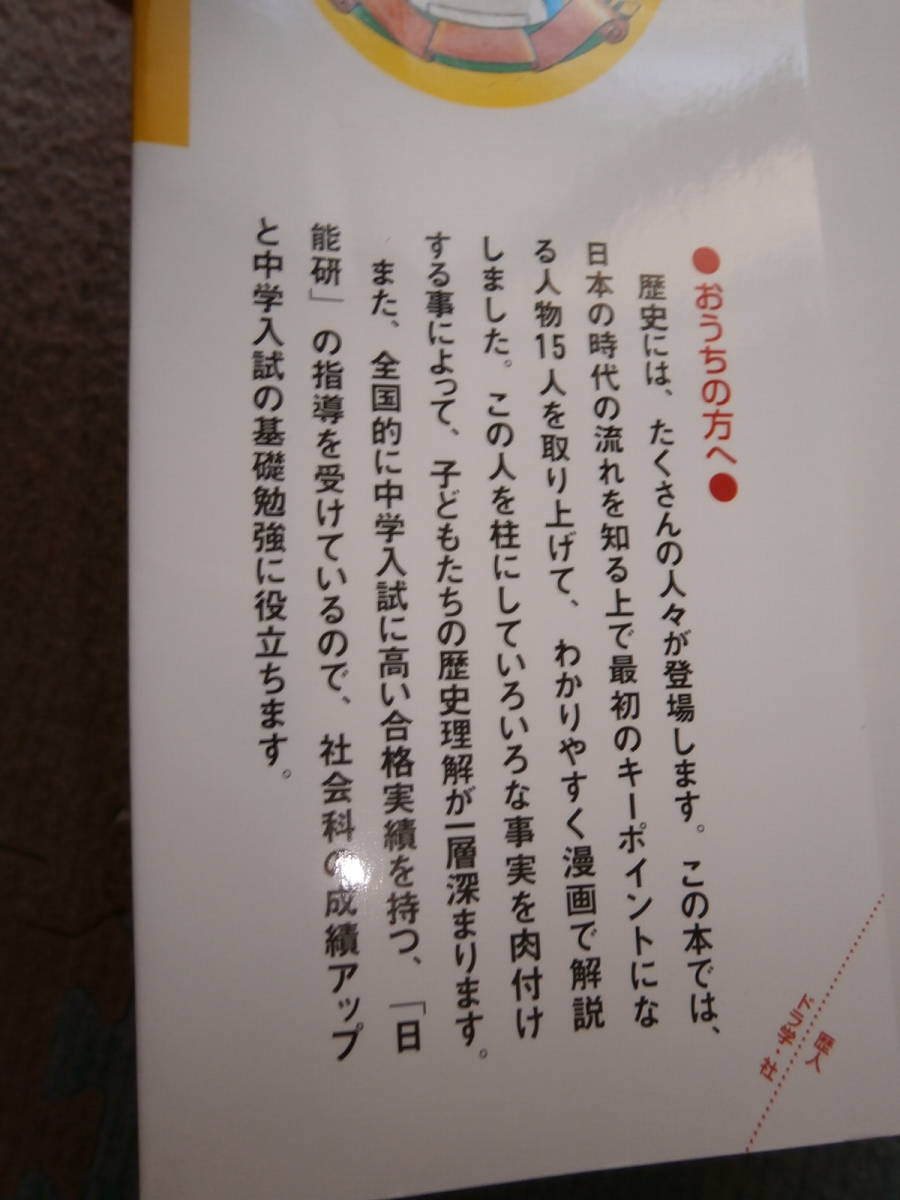 ●おうちの方へ●
歴史には、たくさんの人々が登場します。この本では、
日本の時代の流れを知る上で最初のキーポイントにな
る人物15人を取り上げて、わかりやすく漫画で解説
しました。この人を柱にしていろいろな事実を肉付け
する事によって、子どもたちの歴史理解が一層深まります。
また、全国的に中学入試に高い合格実績を持つ、「日
能研」の指導を受けているので、社会科の成績アップ
と中学入試の基礎勉強に役立ちます。
歴人
ドラ学・社